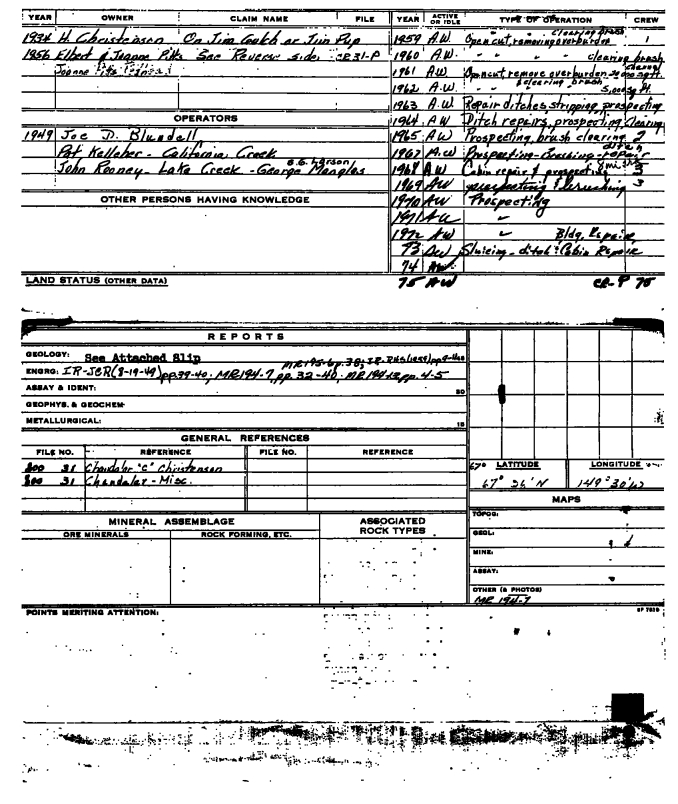 YEAR OWNER CLAIM NAME FILE
1934 H. Christenson On Jim Gulch or Jim Pup
1956 Elbert & Joanne Pitts See Reverse side
Joanne Pitts
OPERATORS
1949 Joe D. Blundell
Pat Kelleher - California Creek
John Rooney - Lake Creek - George Mangles
B.G. Larson
OTHER PERSONS HAVING KNOWLEDGE
LAND STATUS (OTHER DATA)
YEAR ACTIVE OR IDLE TYPE OF OPERATION CREW
clearing brush
1959 A.W. Open cut, removing overburden 1
1960 A.W. " " clearing brush
1961 A.W. Open cut, remove overburden
1962 A.W. " " & clearing brush 5,000 sq ft.
1963 A.W. Repair ditches stripping, prospecting
1964 A.W. Ditch repairs, prospecting, clearing
1965 A.W. Prospecting, brush clearing 2
1967 A.W. Prospecting - Brushing - ditch repair
1968 A.W. Cabin repair & prospecting 3
1969 AW prospecting & brushing 3
1970 AW Prospecting
1971 AW "
1972 AW " Bldg. Repairs,
73 AW Sluicing - ditch & Cabin Repair
74 AW
75 AW CR-P 75
REPORTS
GEOLOGY: See Attached Slip
ENGRG: IR-JCR(8-19-49)pp.39-40; MR194-7, pp. 32-40; MR194-12, pp. 4-5
ASSAY & IDENT:
GEOPHYS. & GEOCHEM:
METALLURGICAL:
GENERAL REFERENCES
FILE NO. REFERENCE FILE NO. REFERENCE
300 31 Chandalar "C" Christenson
300 31 Chandalar - Misc.
MINERAL ASSEMBLAGE
ORE MINERALS ROCK FORMING, ETC.
ASSOCIATED ROCK TYPES
POINTS MERITING ATTENTION:
67° LATITUDE LONGITUDE
67° 26' N 149° 30' W
MAPS
TOPOG:
GEOL:
MINE:
ASSAY:
OTHER (& PHOTOS)
MR 194-7